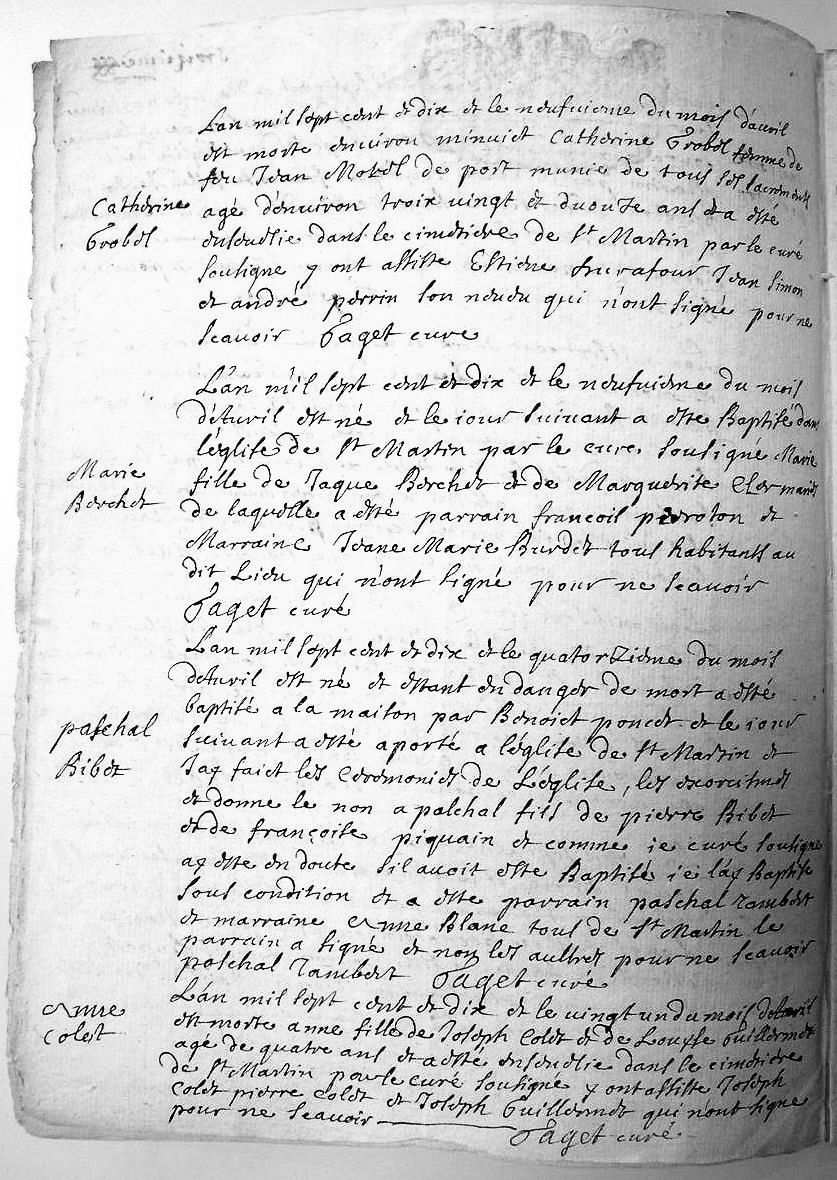 Lan mil sept cent et dix et le neufuieme du mois d'auril
est morte enuiron minuict Catherine Grobel femme de
feu Jean Morel de port munie de tous les sacrements
Catherine
Grobel
agé d'enuiron troix uingt et duouze ans et a esté
enseuelie dans le cimetiere de St Martin par le curé
soutigne y ont assiste Estiene Jean Simon
et andré perrin son neueu qui n'ont signé pour ne
scauoir Paget cure
L'an mil sept cent et dix et le neufuieme du mois
d'Auril est né et le iour suiuant a este Baptisé dans
l'église de St Martin par le cure soutigné Marie
Marie
Berchet
fille de Jaque Berchet et de Marguerite
de laquelle a esté parrain françois perroton et
Marraine Jeane Marie Burdet tous habitants au
dit Lieu qui n'ont signé pour ne scauoir
Paget curé
Lan mil sept cent et dix et le quatorzieme du mois
d'Auril est né et estant en danger de mort a esté
baptisé a la maison par Benoict poncet et le iour
paschal
Bibet
suiuant a esté aporté a l'église de St Martin et
Jay faict les ceremonies de L'église, les exorcismes
et donne le non a paschal fils de pierre Bibet
et de françoise piquain et comme ie curé soutigne
ay este en doute s'il auoit este Baptisé ie l'ay Baptise
sous condition et a este parrain paschal Jambert
et marraine Anne Blanc tous de St Martin le
parrain a signé et non les aultres pour ne scauoir
paschal Jambert Paget curé
Anne
Colet
L'an mil sept cent et dix et le uingt un du mois d'Auril
est morte anne fille de Joseph Colet et de Louyse Guillermet
agé de quatre ans et a esté enseuelie dans le cimetiere
de St Martin par le curé soutigné y ont assiste Joseph
Colet pierre Colet et Joseph Guillermet qui n'ont signe
pour ne scauoir
Paget curé